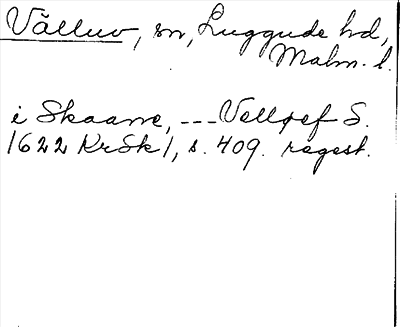 Välluv, sn, Luggude hd,
Malm. l.
i Skaane, --- Velløef S.
1622 KrSk 1, s. 409. regest.